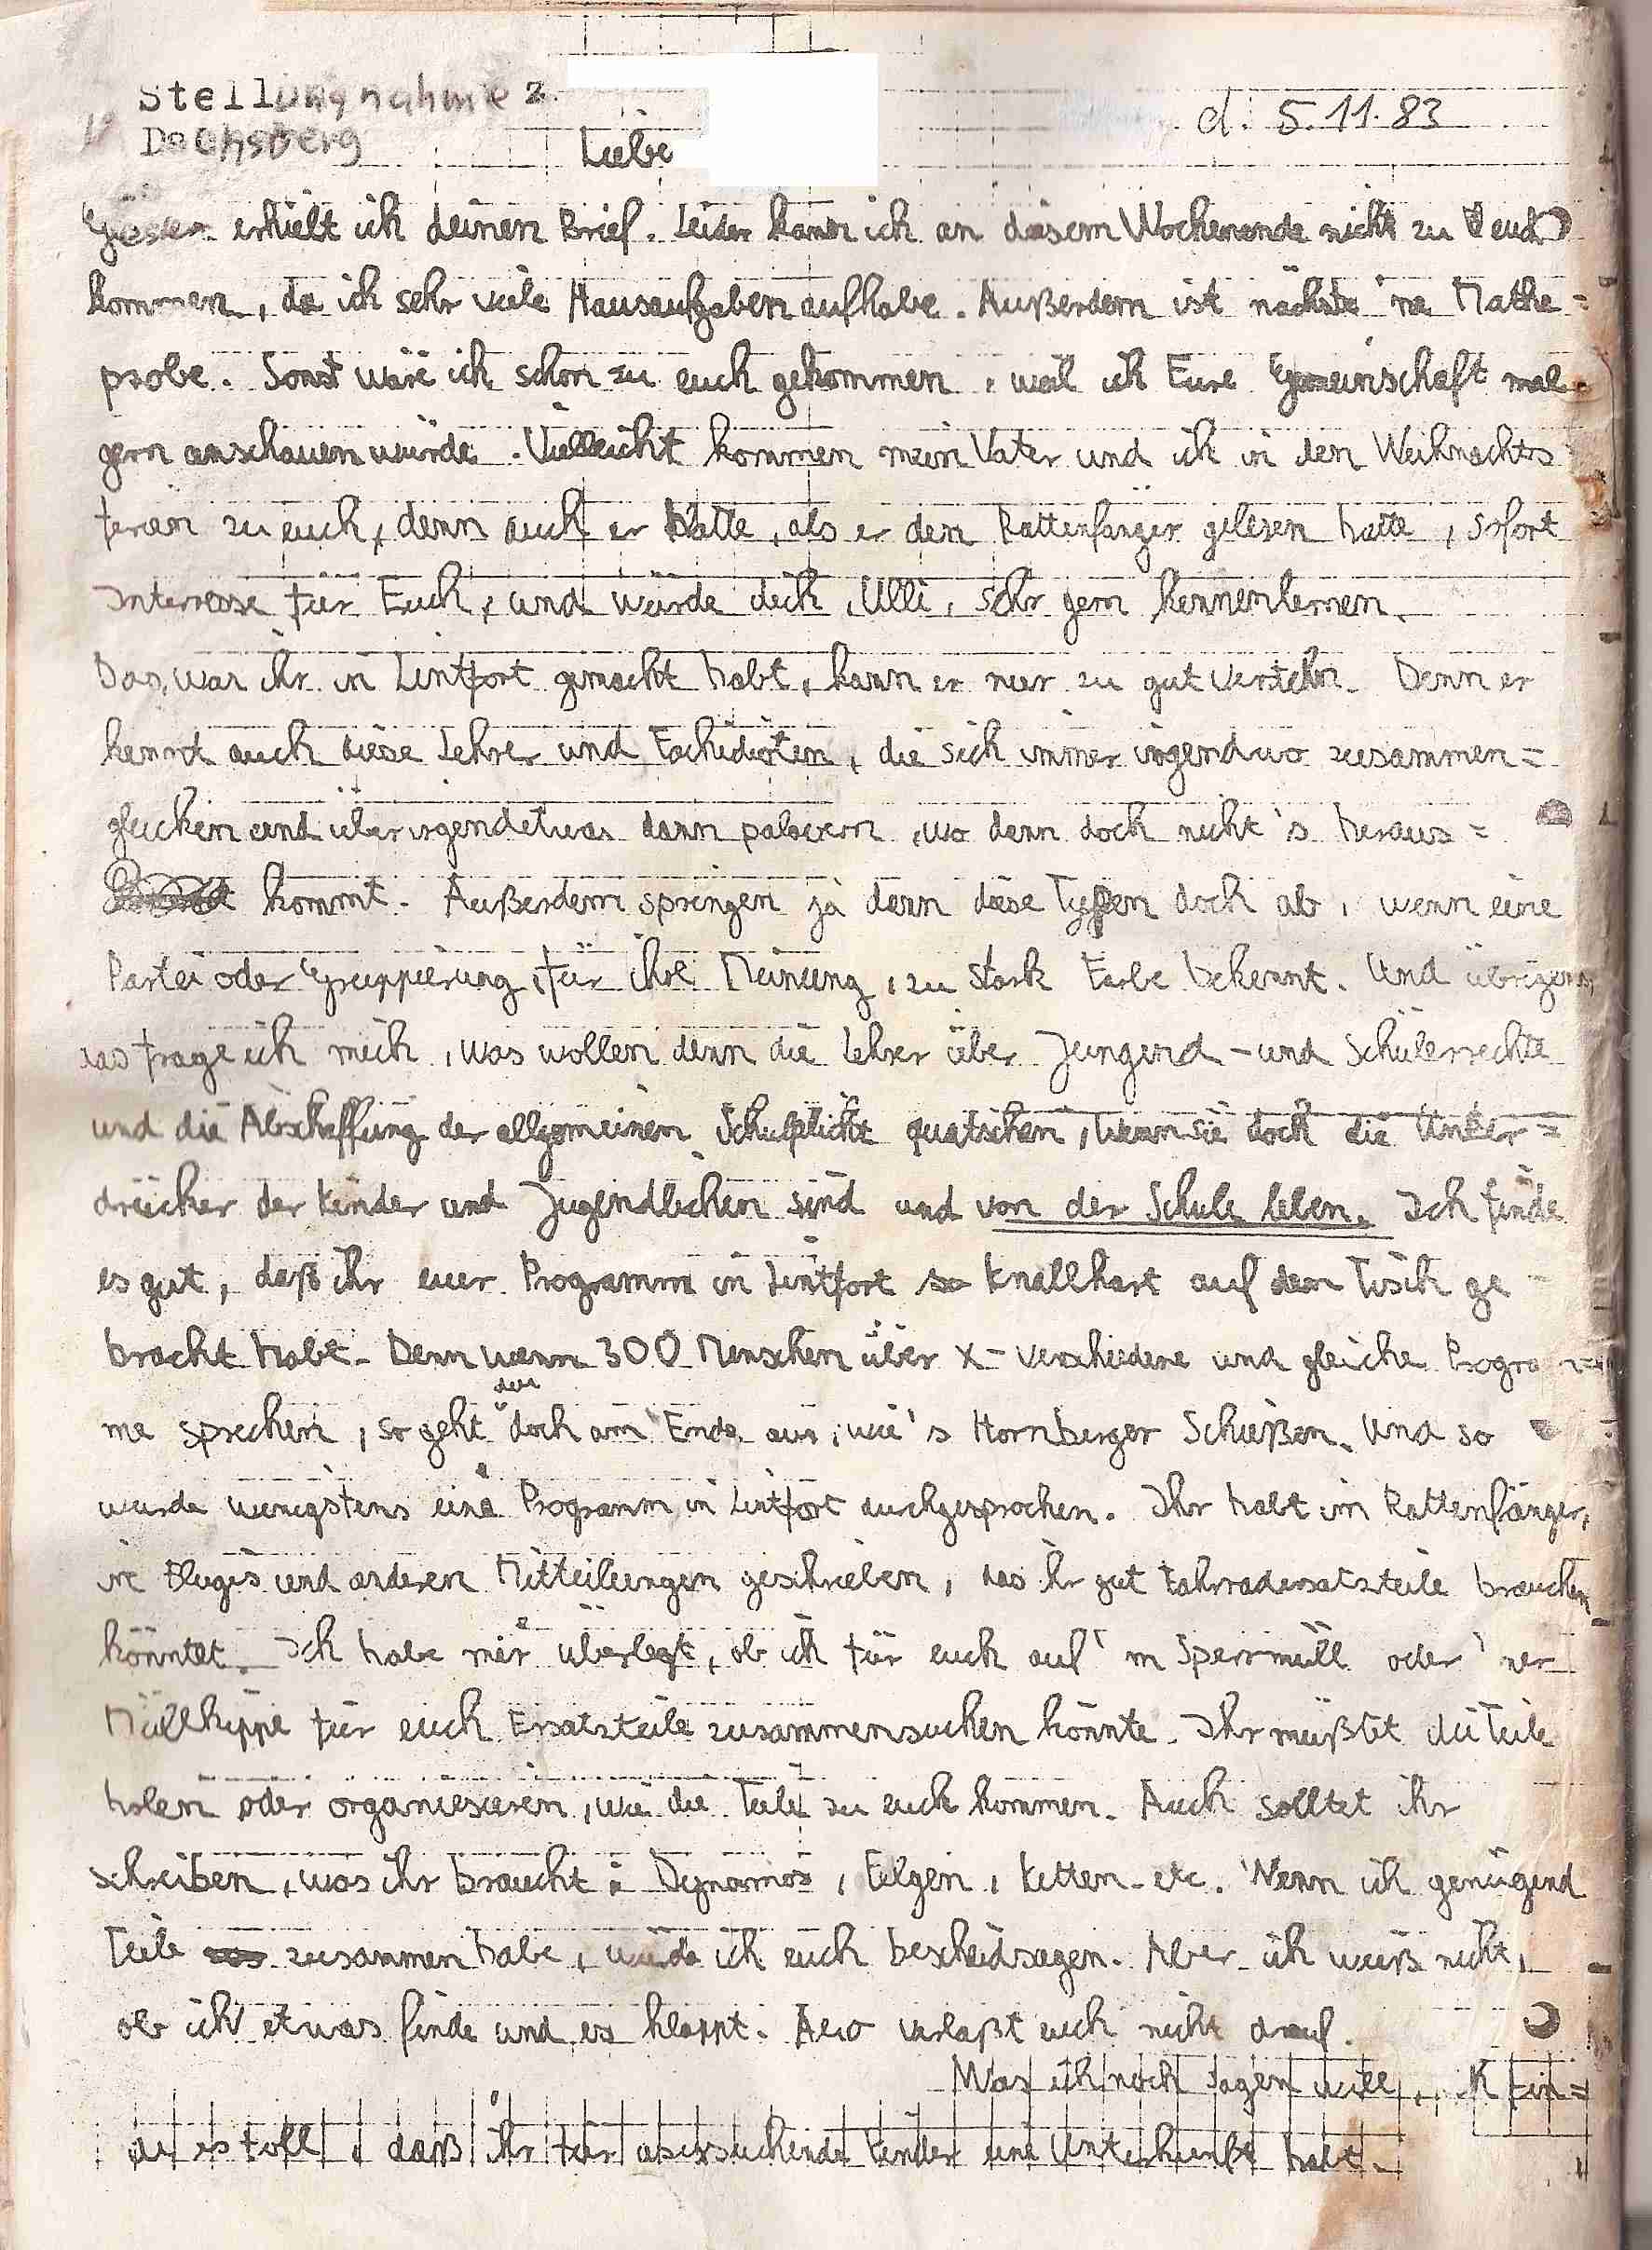 Stellungnahme z.
Dachsberg
d. 5.11.83
Liebe
Gestern erhielt ich deinen Brief. Leider kann ich an diesem Wochenende nicht zu euch
kommen, da ich sehr viele Hausaufgaben aufhabe. Außerdem ist nächste 'ne Mathe=
probe. Sonst wäre ich schon zu euch gekommen, weil ich Eure Gemeinschaft mal
gern anschauen würde. Vielleicht kommen mein Vater und ich in den Weihnachts
ferien zu euch, denn auch er hatte, als er den Rattenfänger gelesen hatte, sofort
Interresse für Euch, und würde dich, Ulli, sehr gern kennenlernen.
Das, was ihr in Lintfort gemacht habt, kann er nur zu gut verstehn. Denn er
kennt auch diese Lehrer und Fachidioten, die sich immer irgendwo zusammen=
glucken und über irgendetwas dann palavern, wo dann doch nicht's heraus=
kommt. Außerdem springen ja dann diese Typen doch ab, wenn eine
Partei oder Gruppierung, für ihre Meinung, zu stark Farbe bekennt. Und übrigens,
das frage ich mich, was wollen denn die Lehrer über Jungend- und Schülerrechte
und die Abschaffung der allgemeinen Schulplicht quatschen, wenn sie doch die Unter=
drücker der Kinder und Jugendlichen sind und von der Schule leben. Ich finde
es gut, daß ihr euer Programm in Lintfort so knallhart auf den Tisch ge-
bracht habt. Denn wenn 300 Menschen über x-verschiedene und gleiche Program
me sprechen, so geht denn doch am Ende aus, wie's Hornberger Schießen. Und so
wurde wenigstens eine Programm in Lintfort durchgesprochen. Ihr habt im Rattenfänger,
in Flugis und anderen Mitteilungen geschrieben, das ihr gut Fahrradersatzteile brauchen
könntet. Ich habe mir überlegt, ob ich für euch auf'm Sperrmüll oder 'ner
Müllkippe für euch Ersatzteile zusammensuchen könnte. Ihr müßtet die Teile
holen oder organiesieren, wie die Teile zu euch kommen. Auch solltet ihr
schreiben, was ihr braucht: Dynamos, Felgen, Ketten etc. Wenn ich genügend
Teile zusammen habe, würde ich euch bescheidsagen. Aber ich weiß nicht,
ob ich etwas finde und es klappt. Also verlaßt euch nicht drauf.
Was ich noch sagen will, ich fin=
de es toll, daß ihr für asylsuchende Kinder eine Unterkunft habt.